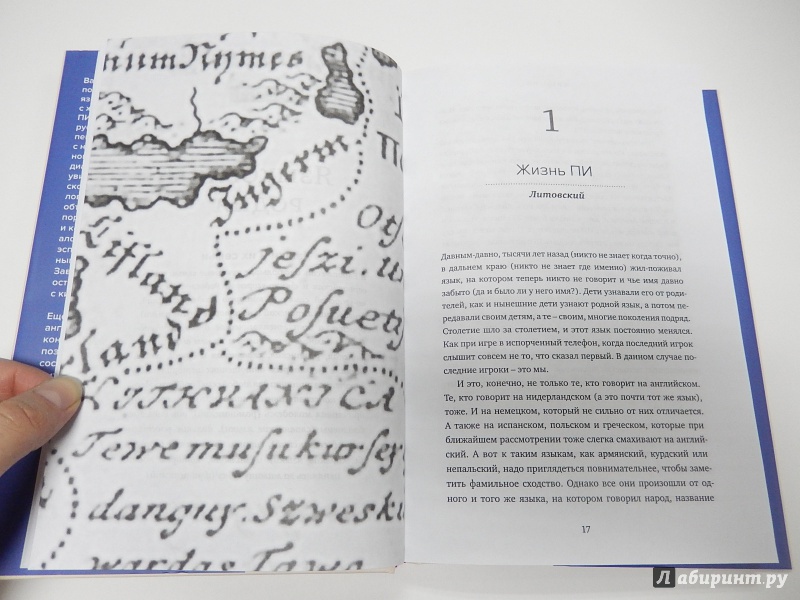 num Nymes
Ingerm
Lifland
land
Ots
jeſzi. u
Poſuety
LITHUANICA
Tewe muſu kurſey
danguy. Szweſku
wardas Tawo
1
Жизнь ПИ
Литовский
Давным-давно, тысячи лет назад (никто не знает когда точно),
в дальнем краю (никто не знает где именно) жил-поживал
язык, на котором теперь никто не говорит и чье имя давно
забыто (да и было ли у него имя?). Дети узнавали его от роди-
телей, как и нынешние дети узнают родной язык, а потом пе-
редавали своим детям, а те – своим, многие поколения подряд.
Столетие шло за столетием, и этот язык постоянно менялся.
Как при игре в испорченный телефон, когда последний игрок
слышит совсем не то, что сказал первый. В данном случае по-
следние игроки – это мы.
И это, конечно, не только те, кто говорит на английском.
Те, кто говорит на нидерландском (а это почти тот же язык),
тоже. И на немецком, который не сильно от них отличается.
А также на испанском, польском и греческом, которые при
ближайшем рассмотрении тоже слегка смахивают на англий-
ский. А вот к таким языкам, как армянский, курдский или
непальский, надо приглядеться повнимательнее, чтобы заме-
тить фамильное сходство. Однако все они произошли от од-
ного и того же языка, на котором говорил народ, название
17
Лабиринт.ру